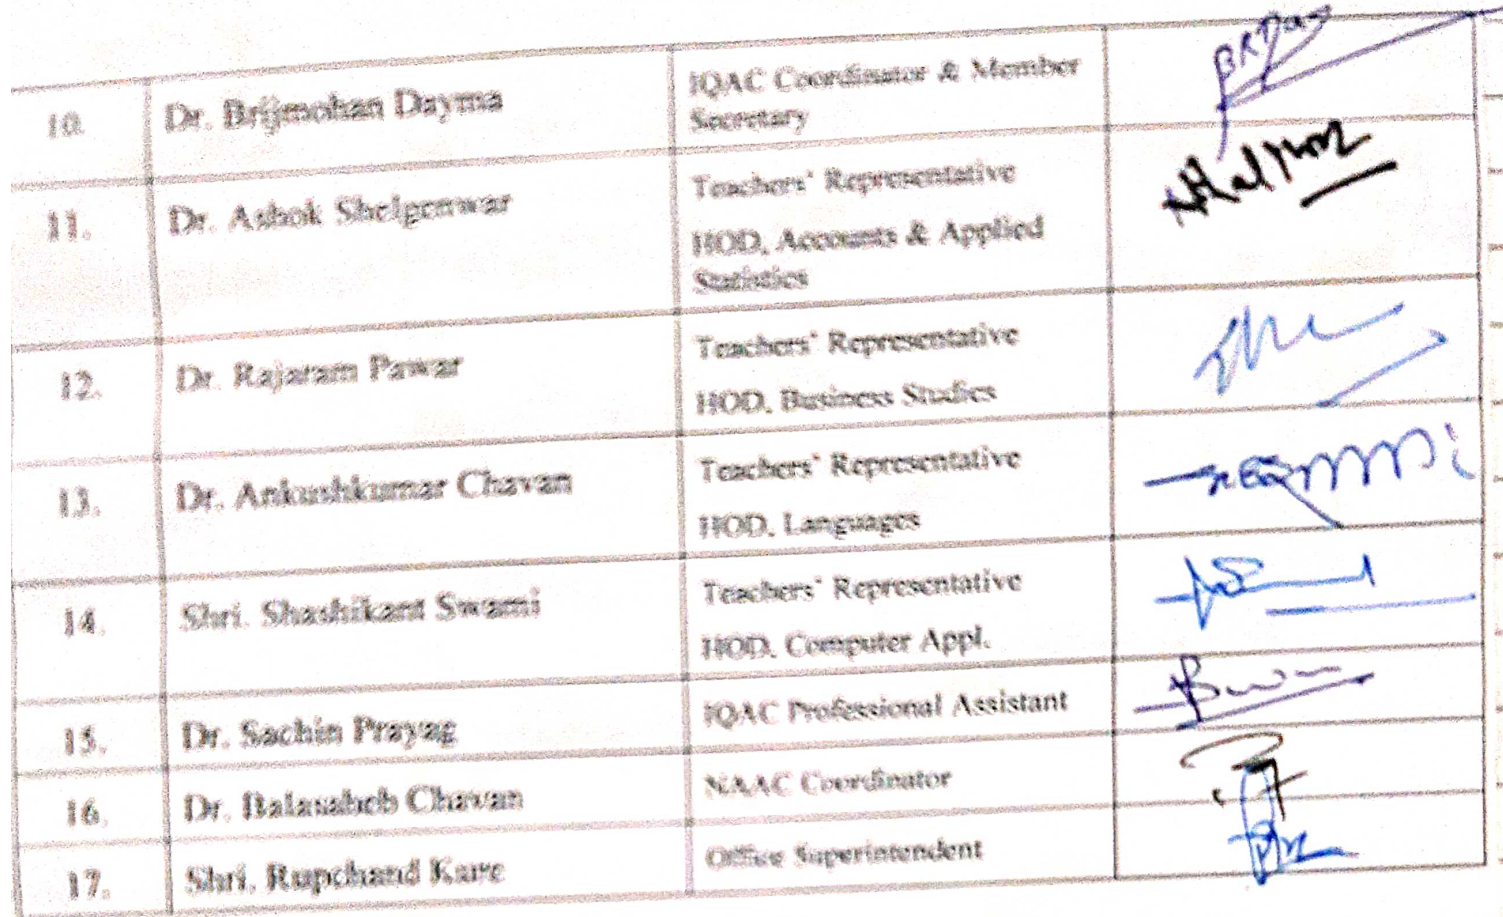 10. Dr. Brijmohan Dayma IQAC Coordinator & Member
Secretary
11. Dr. Ashok Shelgenwar Teachers' Representative
HOD, Accounts & Applied
Statistics
12. Dr. Rajaram Pawar Teachers' Representative
HOD, Business Studies
13. Dr. Ankushkumar Chavan Teachers' Representative
HOD, Languages
14. Shri. Shashikant Swami Teachers' Representative
HOD, Computer Appl.
15. Dr. Sachin Prayag IQAC Professional Assistant
16. Dr. Balasaheb Chavan NAAC Coordinator
17. Shri. Rupchand Kare Office Superintendent